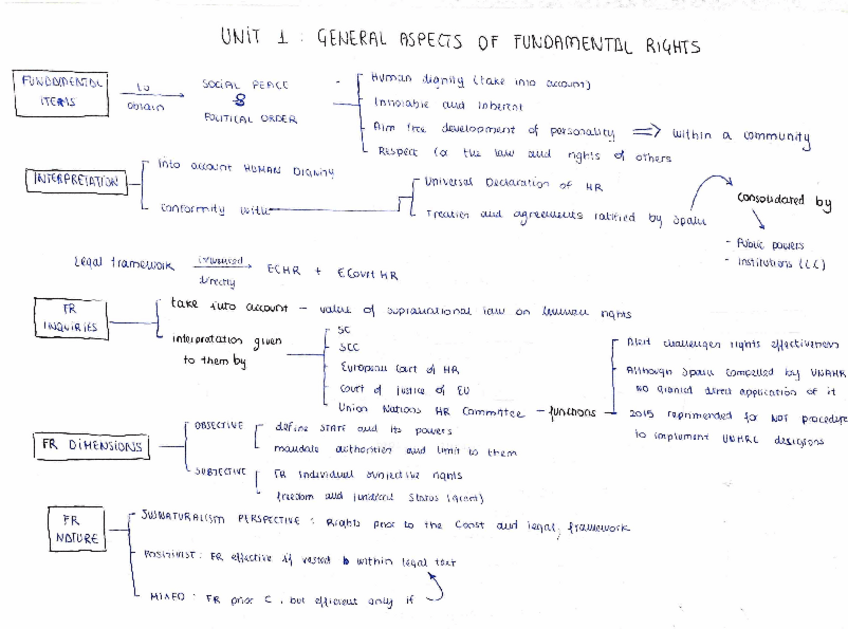 UNIT 1 : GENERAL ASPECTS OF FUNDAMENTAL RIGHTS
FUNDAMENTAL ITEMS
to obtain
SOCIAL PEACE
&
POLITICAL ORDER
- Human dignity (take into account)
Inviolable and inherent
Aim free development of personality ⟹ within a community
Respect for the law and rights of others
INTERPRETATION
Into account HUMAN DIGNITY
Conformity with
Universal Declaration of HR
Treaties and agreements ratified by Spain
consolidated by
- Public powers
- Institutions
Legal framework
influenced directly
ECHR + ECourt HR
FR INQUIRIES
take into account - value of supranational law on human rights
interpretation given to them by
SC
SCC
European Court of HR
Court of justice of EU
Union Nations HR Committee - functions
Alert challenges rights effectiveness
Although Spain compelled by
NO granted direct application of it
2015 for NOT
to implement
FR DIMENSIONS
OBJECTIVE
define STATE and its powers
mandate authorities and limit to them
SUBJECTIVE
FR individual subjective rights
freedom and juridical status
FR NATURE
PERSPECTIVE : Rights prior to the Const and legal framework
POSITIVIST : FR effective if vested within legal text
MIXED : FR prior C, but efficient only if